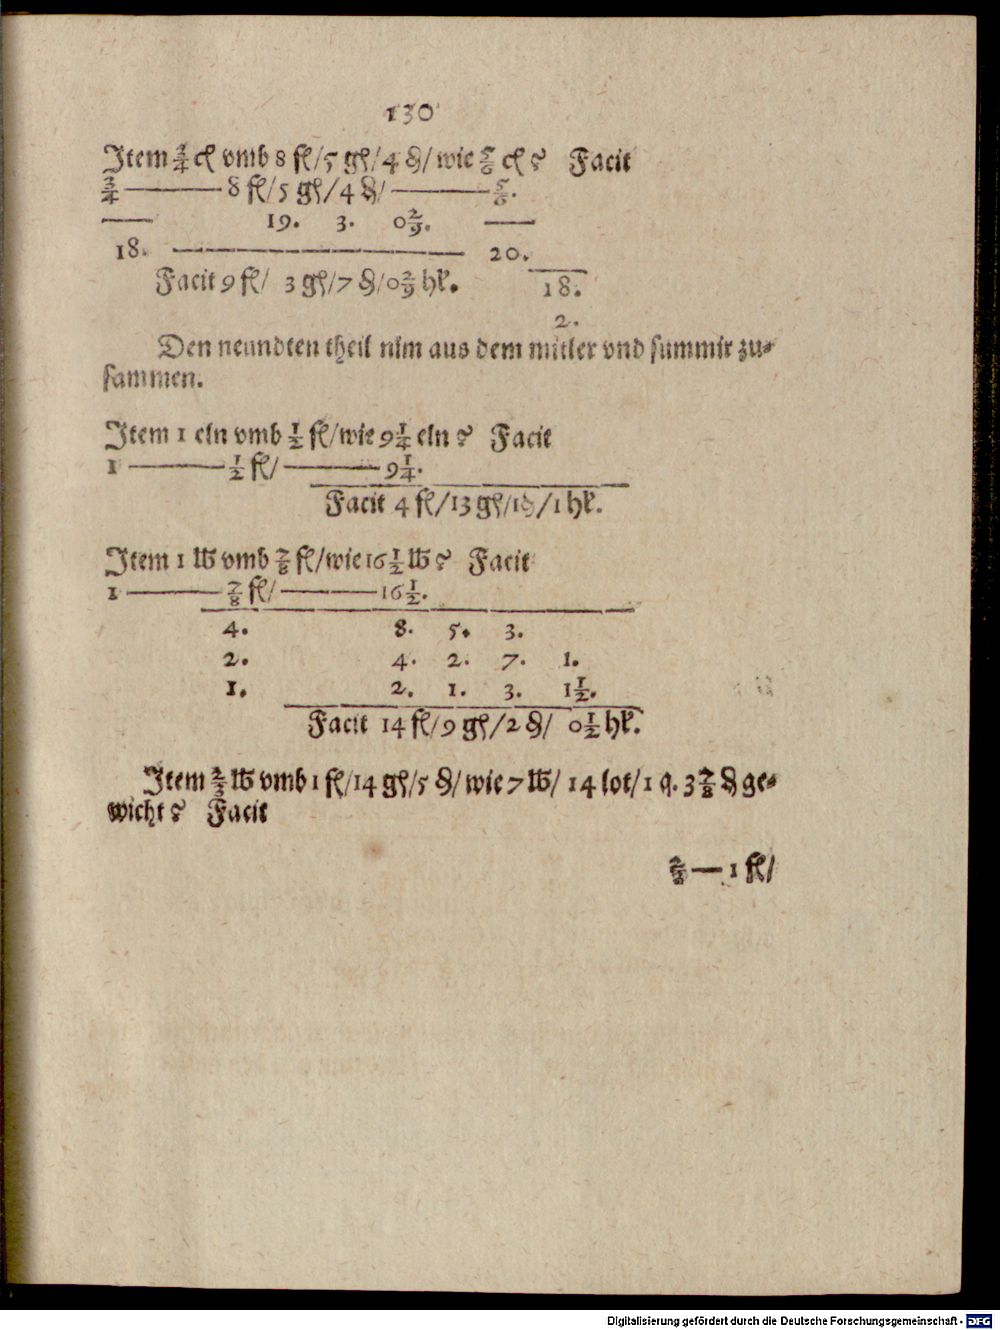 130
Item ¾ cl vmb 8 fl/5 gl/4 ₰/ wie 5/6 cl? Facit
¾ ——— 8 fl/5 gl/4 ₰/ ——— 5/6.
19. 3. 0 2/9.
18. ——— 20.
Facit 9 fl/ 3 gl/7 ₰/0 2/9 hl. 18.
2.
Den neundten theil nim aus dem mitler vnd summir zu-
sammen.
Item 1 eln vmb ½ fl/wie 9¼ eln? Facit
1 ——— ½ fl/ ——— 9¼.
Facit 4 fl/13 gl/1₰/1 hl.
Item 1 ℔ vmb 7/8 fl/wie 16½ ℔? Facit
1 ——— 7/8 fl/ ——— 16½.
4. 8. 5. 3.
2. 4. 2. 7. 1.
1. 2. 1. 3. 1½.
Facit 14 fl/9 gl/2 ₰/ 0½ hl.
Item 2/3 ℔ vmb 1 fl/14 gl/5 ₰/ wie 7 ℔/ 14 lot/1 q. 3 7/8 ₰ ge-
wicht? Facit
— 1 fl/
Digitalisierung gefördert durch die Deutsche Forschungsgemeinschaft - DFG